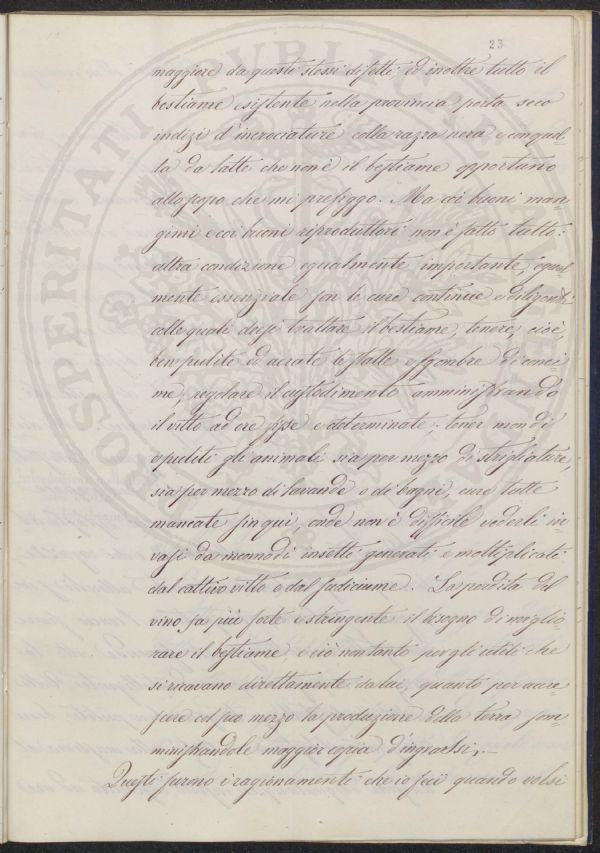 23
maggiore da questi stessi difetti: ed inoltre tutto il
bestiame esistente nella provincia porta seco
indizi d'incrociature colla razza nera e con quel=
la da latte che non è il bestiame opportuno
allo scopo che mi prefiggo. Ma coi buoni man=
gimi e coi buoni riproduttori non è fatto tutto:
altra condizione egualmente importante, egual
mente essenziale son le cure continue e diligenti
colle quali devesi trattare il bestiame, tenere, cioè,
ben pulite ed aerate le stalle e sgombre di conci=
me, regolare il custodimento amministrando
il vitto ad ore fisse e determinate; tener mondi
e puliti gli animali sia per mezzo di strigliature,
sia per mezzo di lavande o di bagni, cure tutte
mancate fin qui, onde non è difficile vederli in=
vasi da incomodi insetti generati e moltiplicati
dal cattivo vitto e dal sudiciume. La perdita del
vino fa più forte e stringente il bisogno di miglio
rare il bestiame e ciò non tanto per gli utili che
si ricavano direttamente da lui, quanto per accre
scere col suo mezzo la produzione della terra som=
ministrandole maggior copia d'ingrassi.—
Questi furono i ragionamenti che io feci quando volsi
PROSPERITATI PVBLICAE